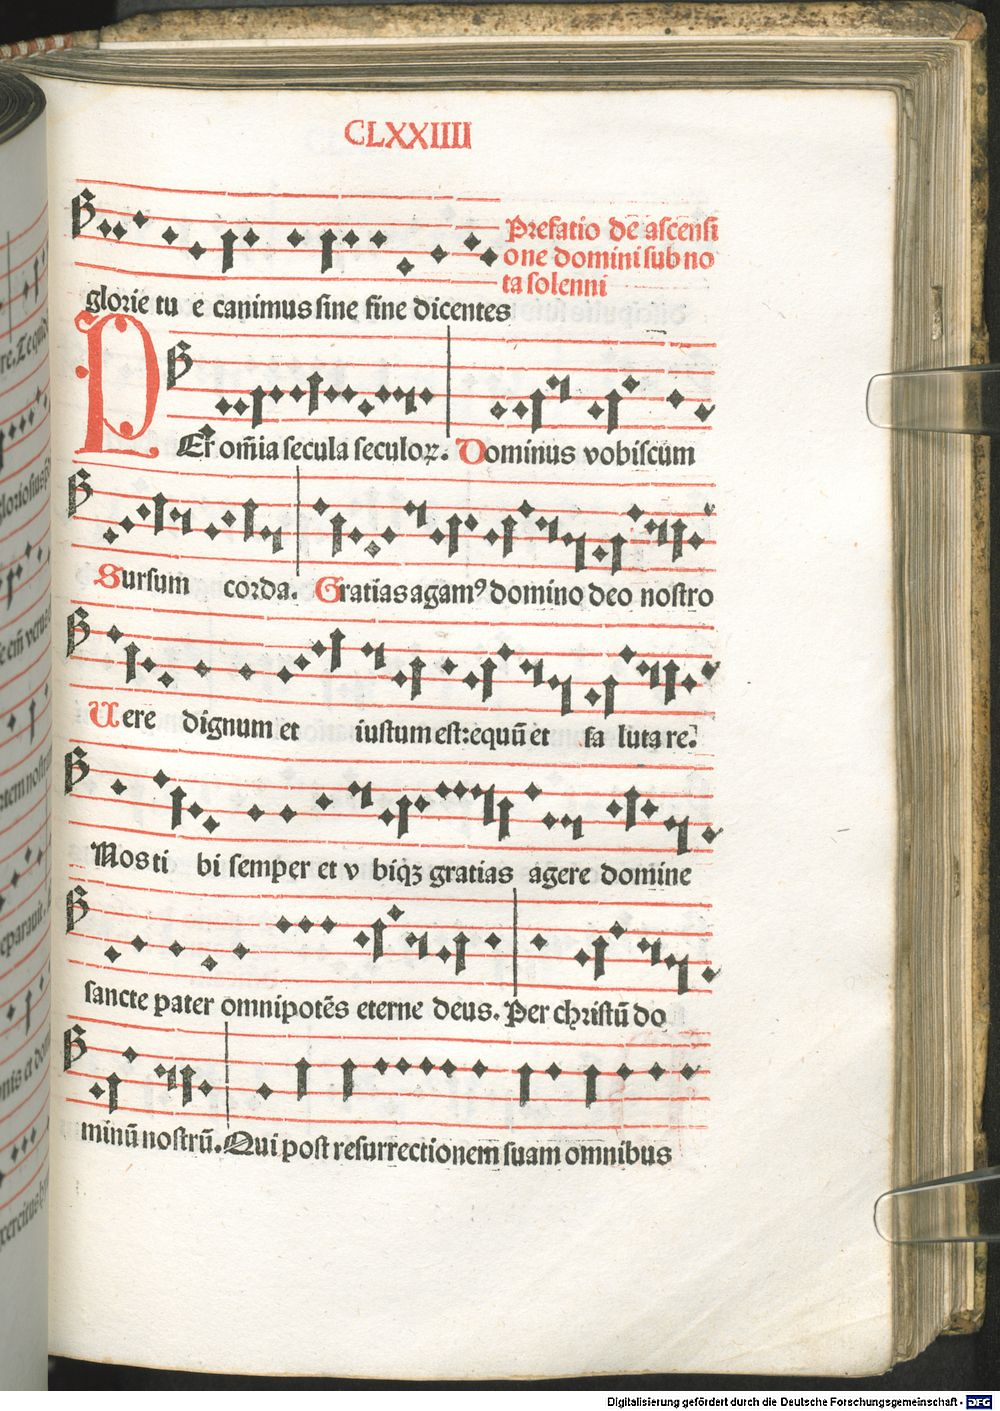 CLXXIIII
Prefatio de ascensi
one domini sub no
ta solenni
glorie tu e canimus sine fine dicentes
PEr om̄ia secula seculoꝝ. Dominus vobiscum
Sursum corda. Gratias agamꝰ domino deo nostro
Uere dignum et iustum est: equū et sa luta re:
Nos ti bi semper et v biqꝫ gratias agere domine
sancte pater omnipotēs eterne deus. Per christū do
minū nostrū. Qui post resurrectionem suam omnibus
Digitalisierung gefördert durch die Deutsche Forschungsgemeinschaft - DFG